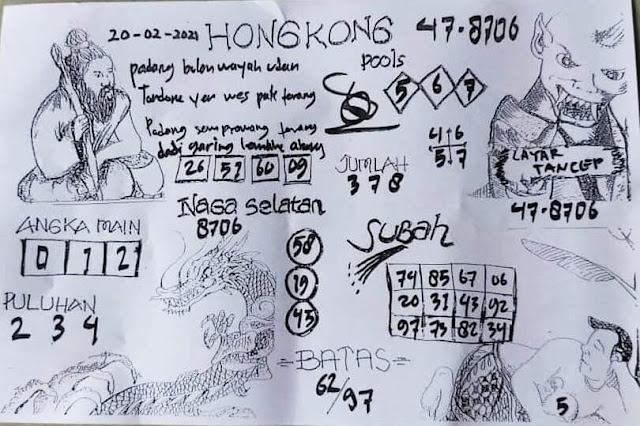 20-02-2021 HONGKONG 47-8706
Pools
padang bulan wayah udan
Tandane yen wes pak terang
Padang semprawang terang
dadi garing
26 52 60 09
5 6 7
4 6
5 7
JUMLAH
3 7 8
LAYAR
TANCEP
47-8706
Naga Selatan
8706
ANGKA MAIN
0 1 2
PULUHAN
2 3 4
58
19
45
SUBAH
74 85 67 06
20 31 43 92
97 73 82 34
=BATAS=
62/97
5